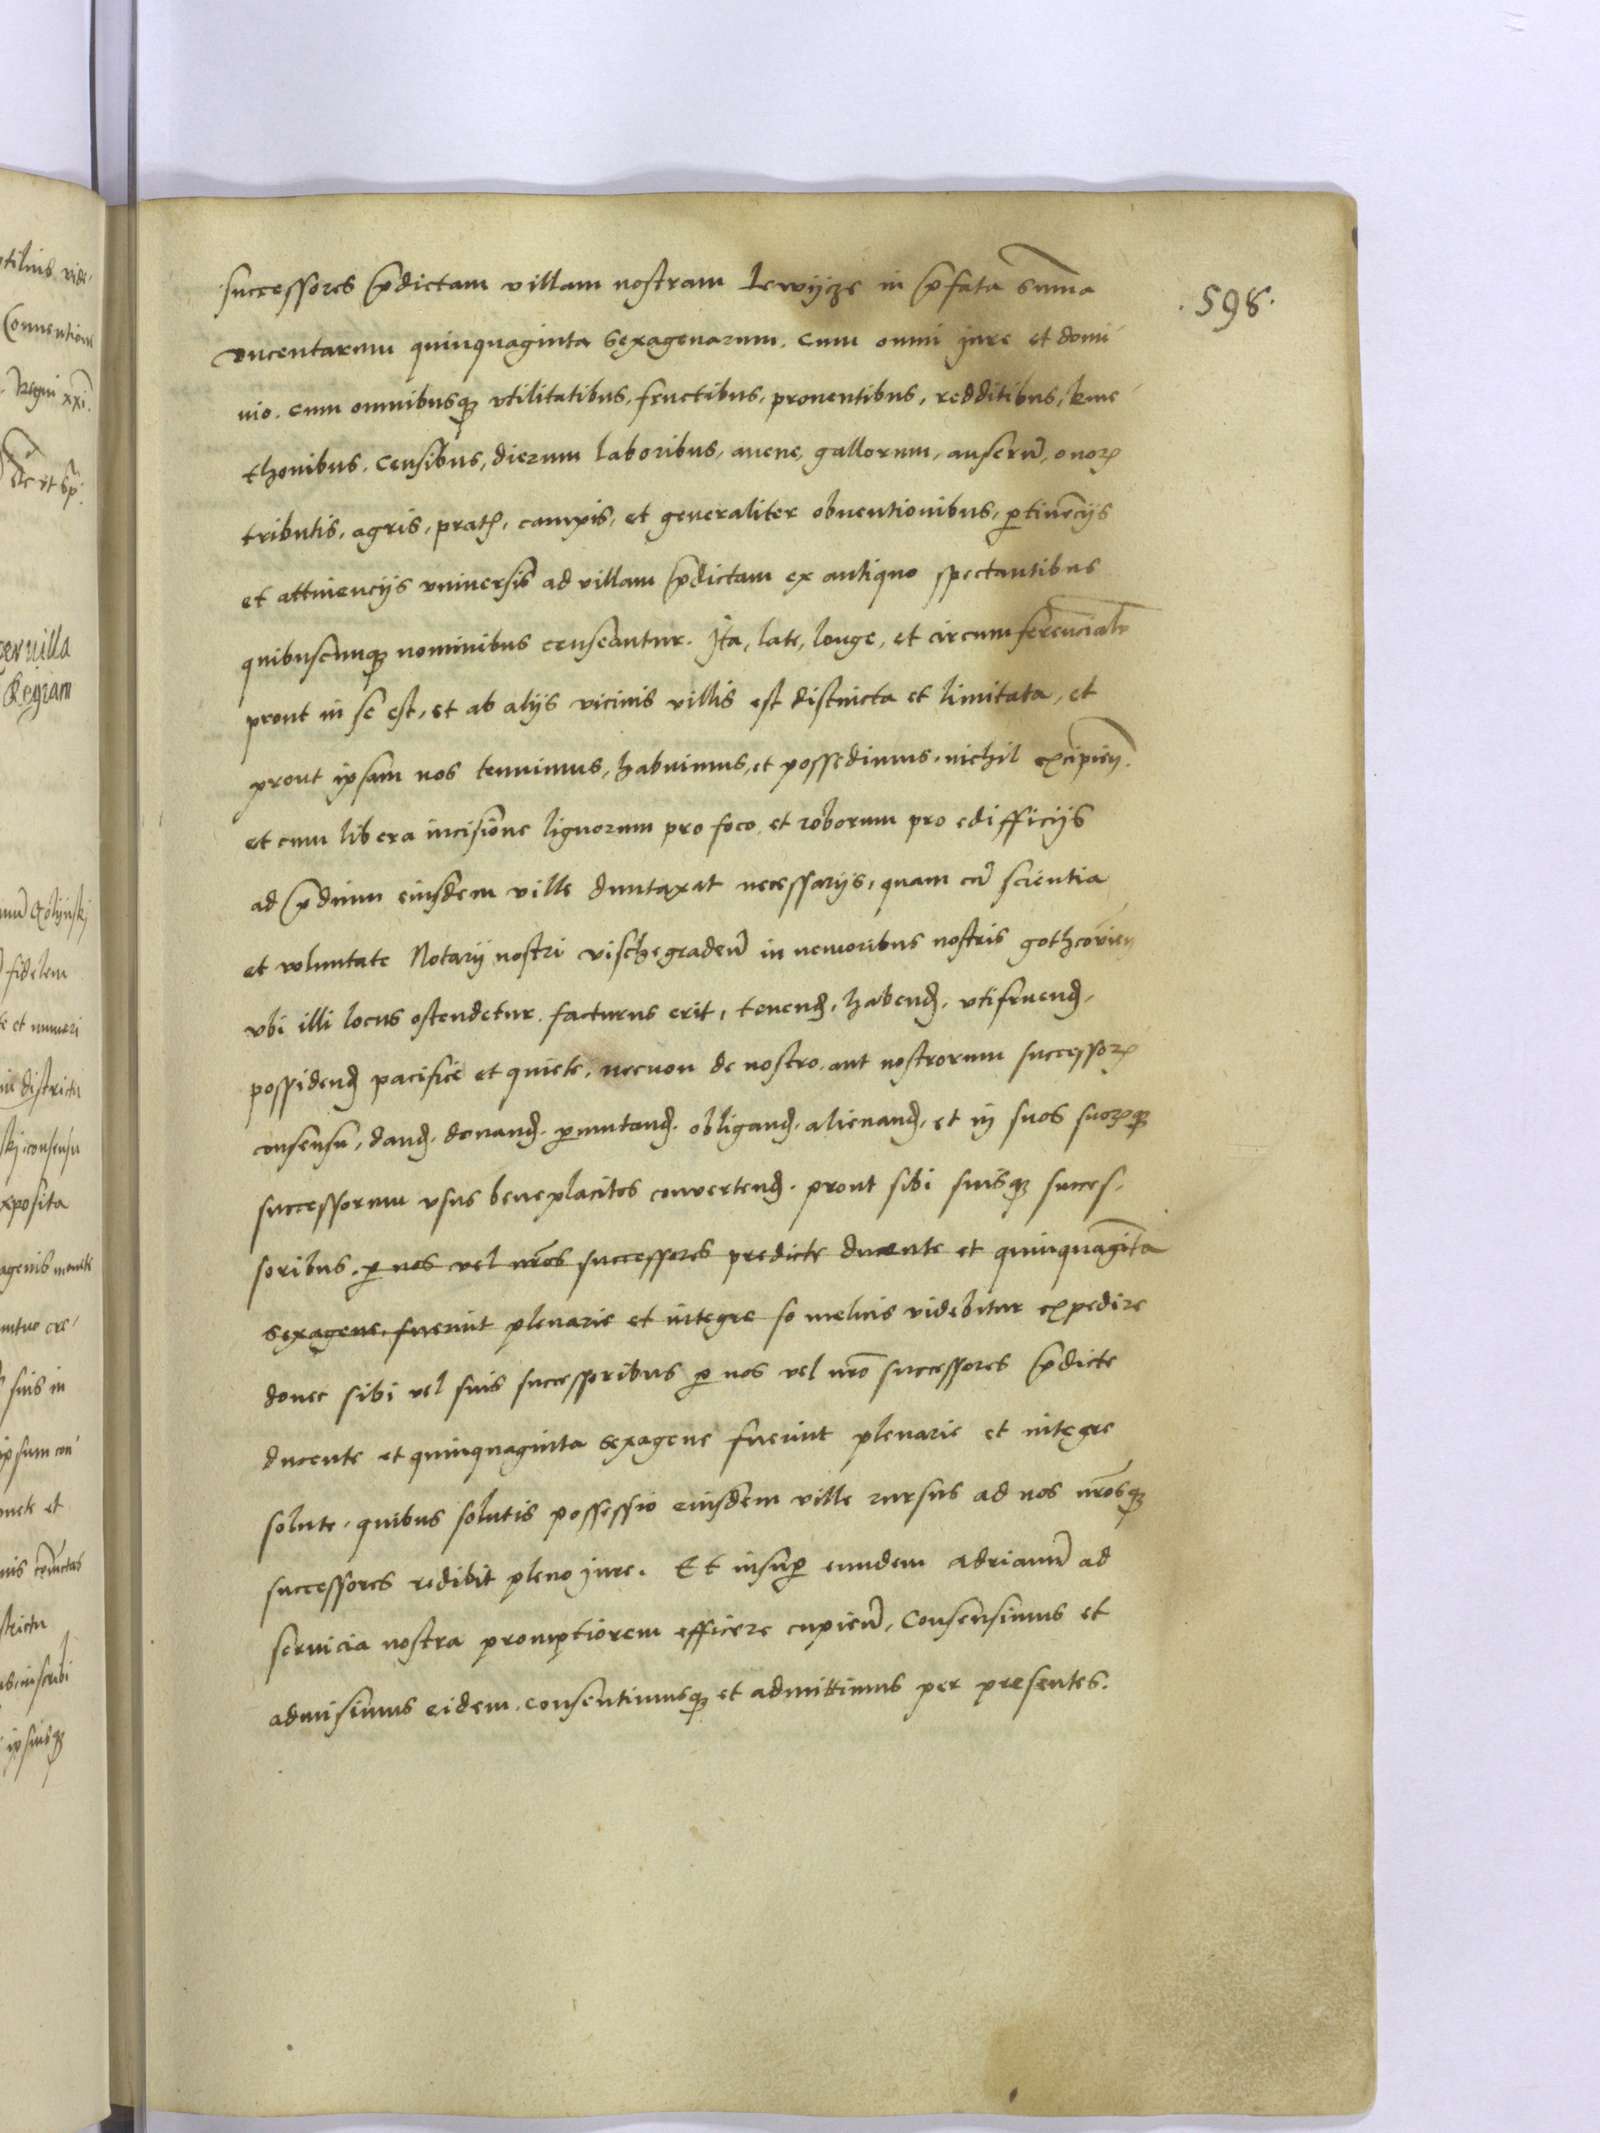 successores p̃dictam villam nostram Lewÿcze in p̃fata sum̃a
Ducentarum quinquaginta sexagenarum. cum omni jure et domi
nio. cum omnibusqꝫ vtilitatibus, fructibus, prouentibus, redditibus, kme
thonibus, censibus, dierum laboribus, auene, gallorum, anserũ, ouorꝝ
tributis, agris, pratꝭ, campis, et generaliter obuentionibus, ꝑtinẽcijs
et attinencijs vniuersis ad villam p̃dictam ex antiquo spectantibus
quibuscumqꝫ nominibus censeantur. Ita, late, longe, et circumferencialr̃
prout in se est, et ab alijs vicinis villis est distincta et limitata, et
prout ipsam nos tenuimus, habuimus, et possedimus. nichil excipien̄.
et cum libera incisione lignorum pro foco, et roborum pro edifficijs
ad p̃dium eiusdem ville duntaxat necessarijs, quam cũ scientia
et voluntate Notarij nostri vischegraden̄ in nemoribus nostris gothcovien̄
vbi illi locus ostendetur. facturus erit, tenend̄, habend̄, vtifruend̄,
possidend̄ pacifice et quiete, necnon de nostro aut nostrorum successorꝝ
consensu, dand̄, donand̄, ꝑmutand̄, obligand̄, alienand̄, et in suos suorꝝqꝫ
successorum vsus beneplacitos convertend̄. prout sibi suisqꝫ succes-
soribus. ꝑ nos vel nr̃os successores predicte ducente et quinquaginta
sexagene. fuerint plenarie et integre so melius videbitur expedire
donec sibi vel suis successoribus ꝑ nos vel nr̃os successores p̃dicte
ducente et quinquaginta sexagene fuerint plenarie et integre
solute. quibus solutis possessio eiusdem ville rursus ad nos nr̃osqꝫ
successores redibit pleno jure. Et insuꝑ eundem Adrianũ ad
seruicia nostra promptiorem efficere cupien̄, Consensimus et
admisimus eidem. consentimusqꝫ et admittimus per presentes.
.598.
er villa
Regiam
fidelem
districtu
consensu
xposita
suis in